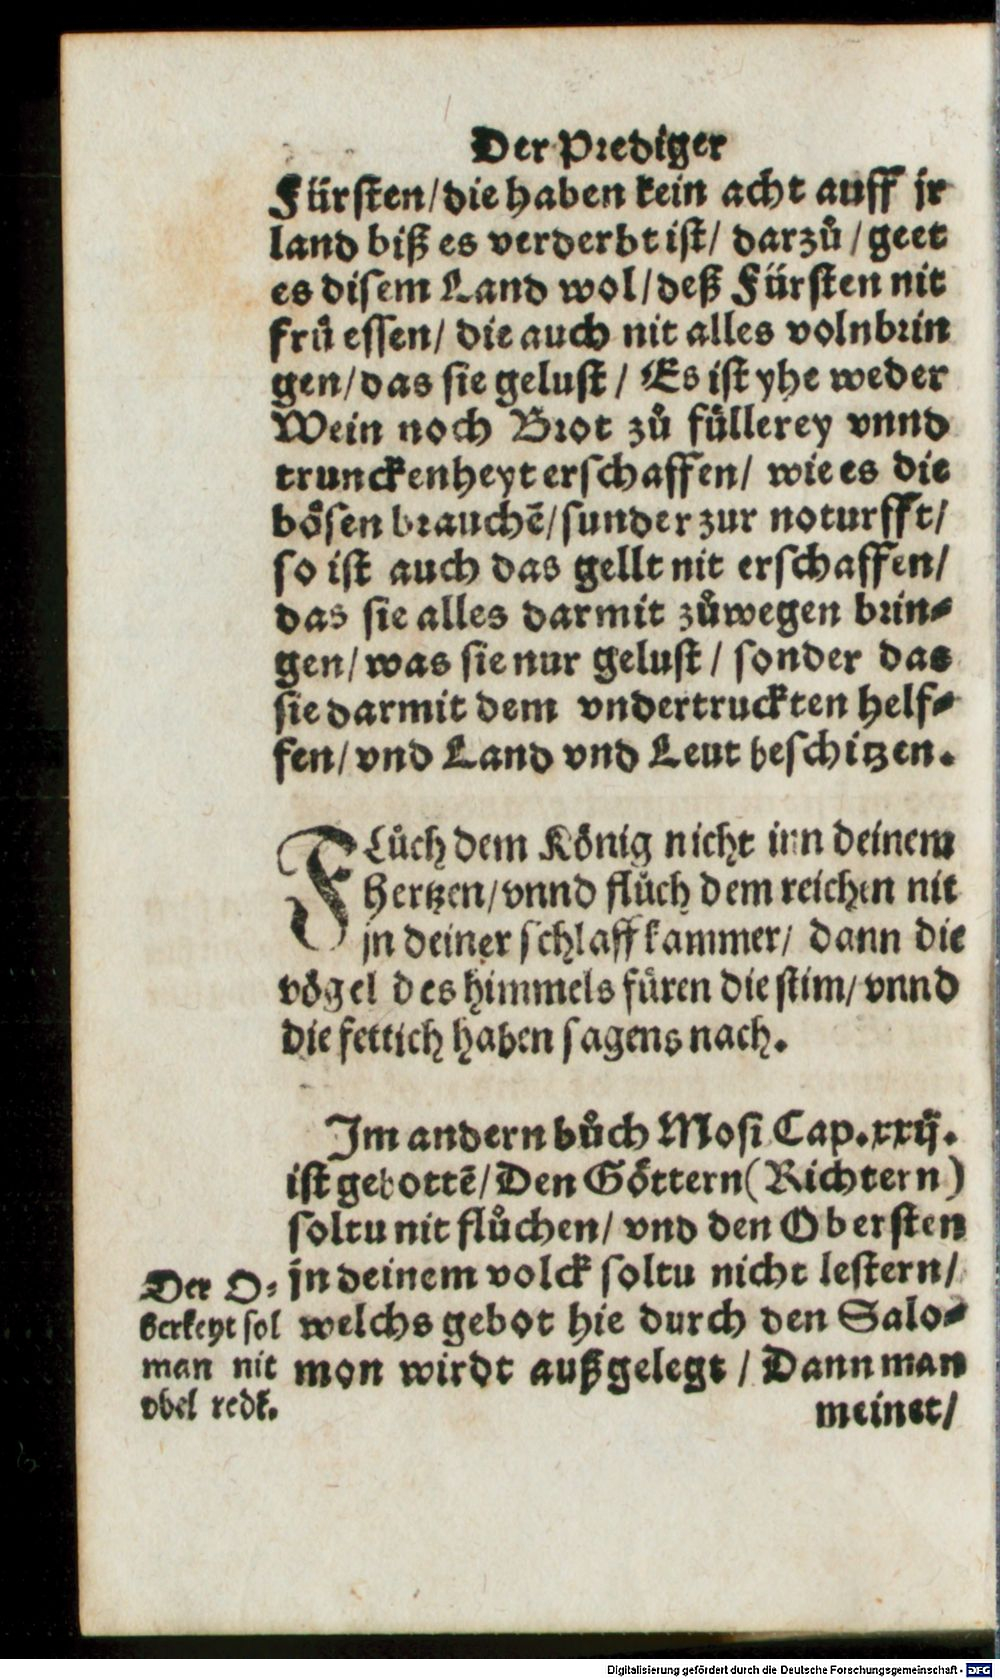 Der Prediger
Fürsten/die haben kein acht auff jr
land biß es verderbt ist/ darzů/geet
es disem Land wol/deß Fürsten nit
frů essen/ die auch nit alles volnbrin
gen/das sie gelust/ Es ist yhe weder
Wein noch Brot zů füllerey vnnd
trunckenheyt erschaffen/ wie es die
bösen brauchē/sunder zur noturfft/
so ist auch das gellt nit erschaffen/
das sie alles darmit zůwegen brin⸗
gen/was sie nur gelust/ sonder das
sie darmit dem vndertruckten helf⸗
fen/vnd Land vnd Leut beschitzen.
FLůch dem König nicht inn deinem
Hertzen/vnnd flůch dem reichen nit
jn deiner schlaffkammer/ dann die
vögel des himmels füren die stim/vnnd
die fettich haben sagens nach.
Im andern bůch Mosi Cap.xxij.
ist gebottē/Den Göttern(Richtern)
soltu nit flůchen/ vnd den Obersten
jn deinem volck soltu nicht lestern/
welchs gebot hie durch den Salo⸗
mon wirdt außgelegt/ Dann man
meinet/
Der O⸗
berkeyt sol
man nit
vbel redē.
Digitalisierung gefördert durch die Deutsche Forschungsgemeinschaft - DFG